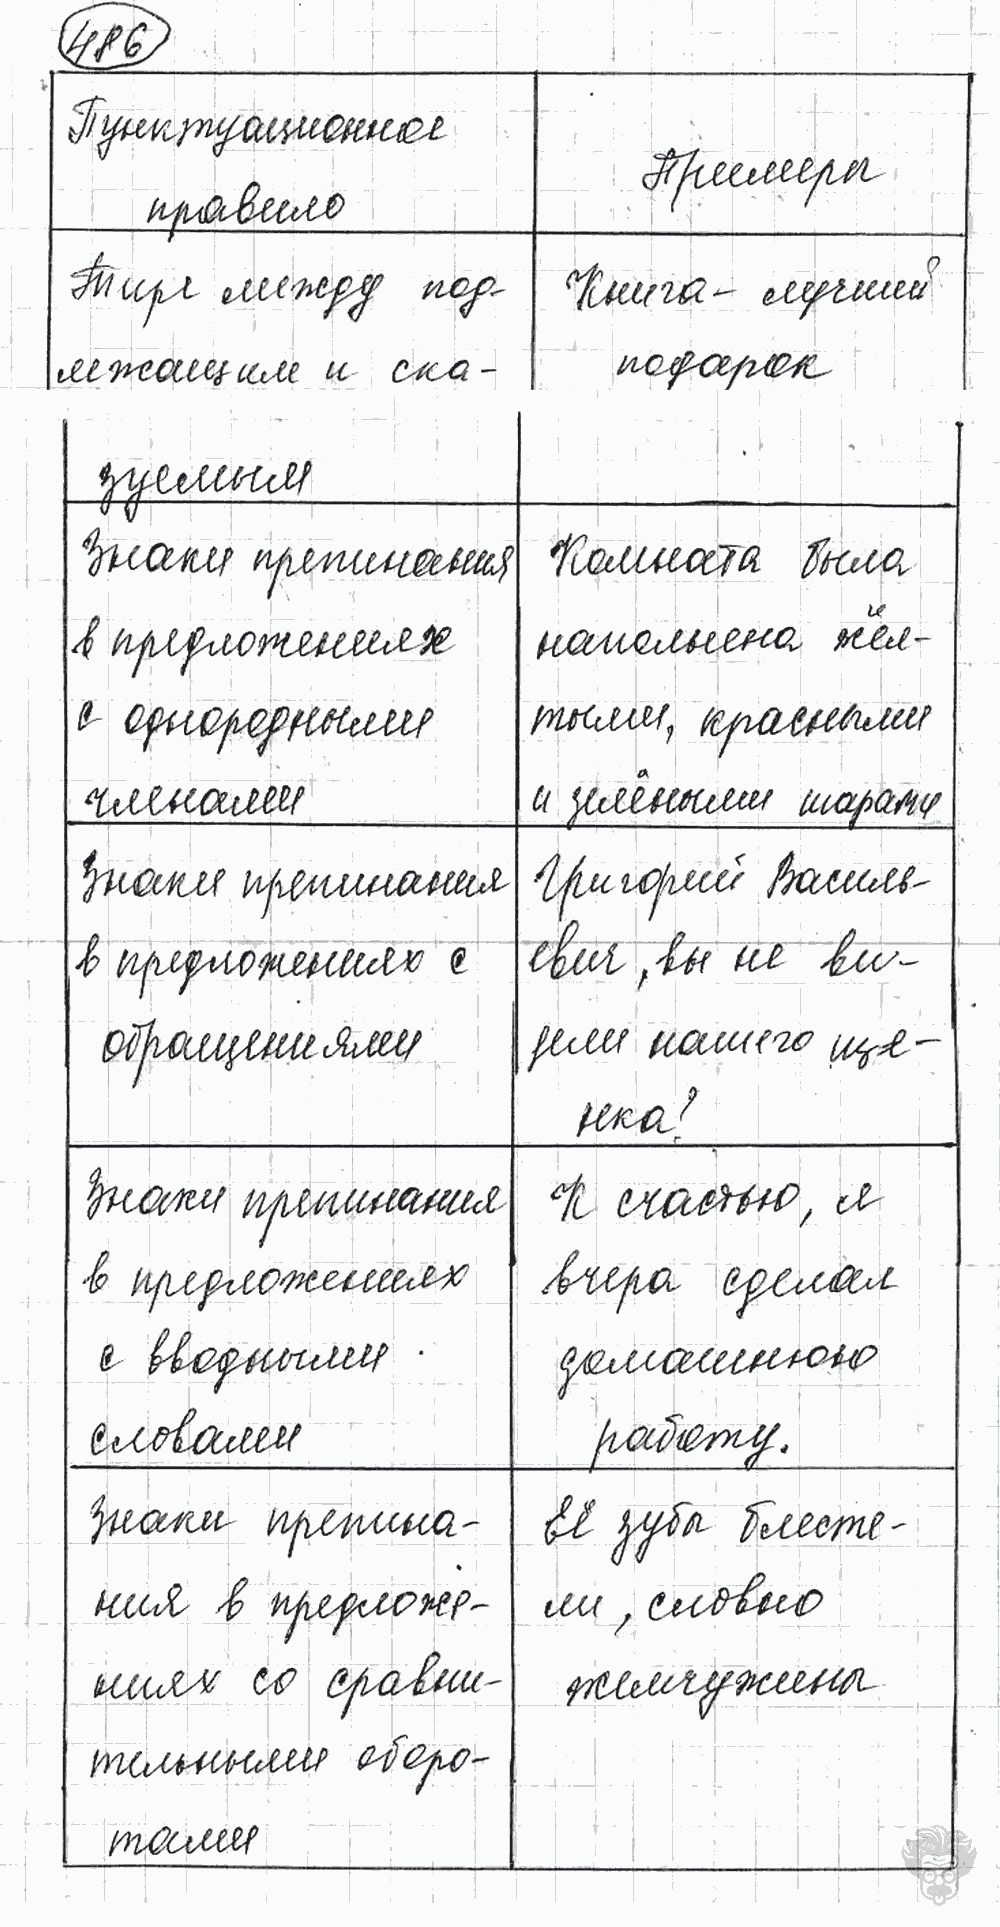 486
Пунктуационное
правило
Примеры
Тире между под-
лежащим и ска-
зуемым
Книга - лучший
подарок
Знаки препинания
в предложениях
с однородными
членами
Комната была
наполнена жёл-
тыми, красными
и зелёными шарами
Знаки препинания
в предложениях с
обращениями
Григорий Василь-
евич, вы не ви-
дели нашего ще-
нка?
Знаки препинания
в предложениях
с вводными
словами
К счастью, я
вчера сделал
домашнюю
работу.
Знаки препина-
ния в предложе-
ниях со сравни-
тельными оборо-
тами
Её зубы блесте-
ли, словно
жемчужины